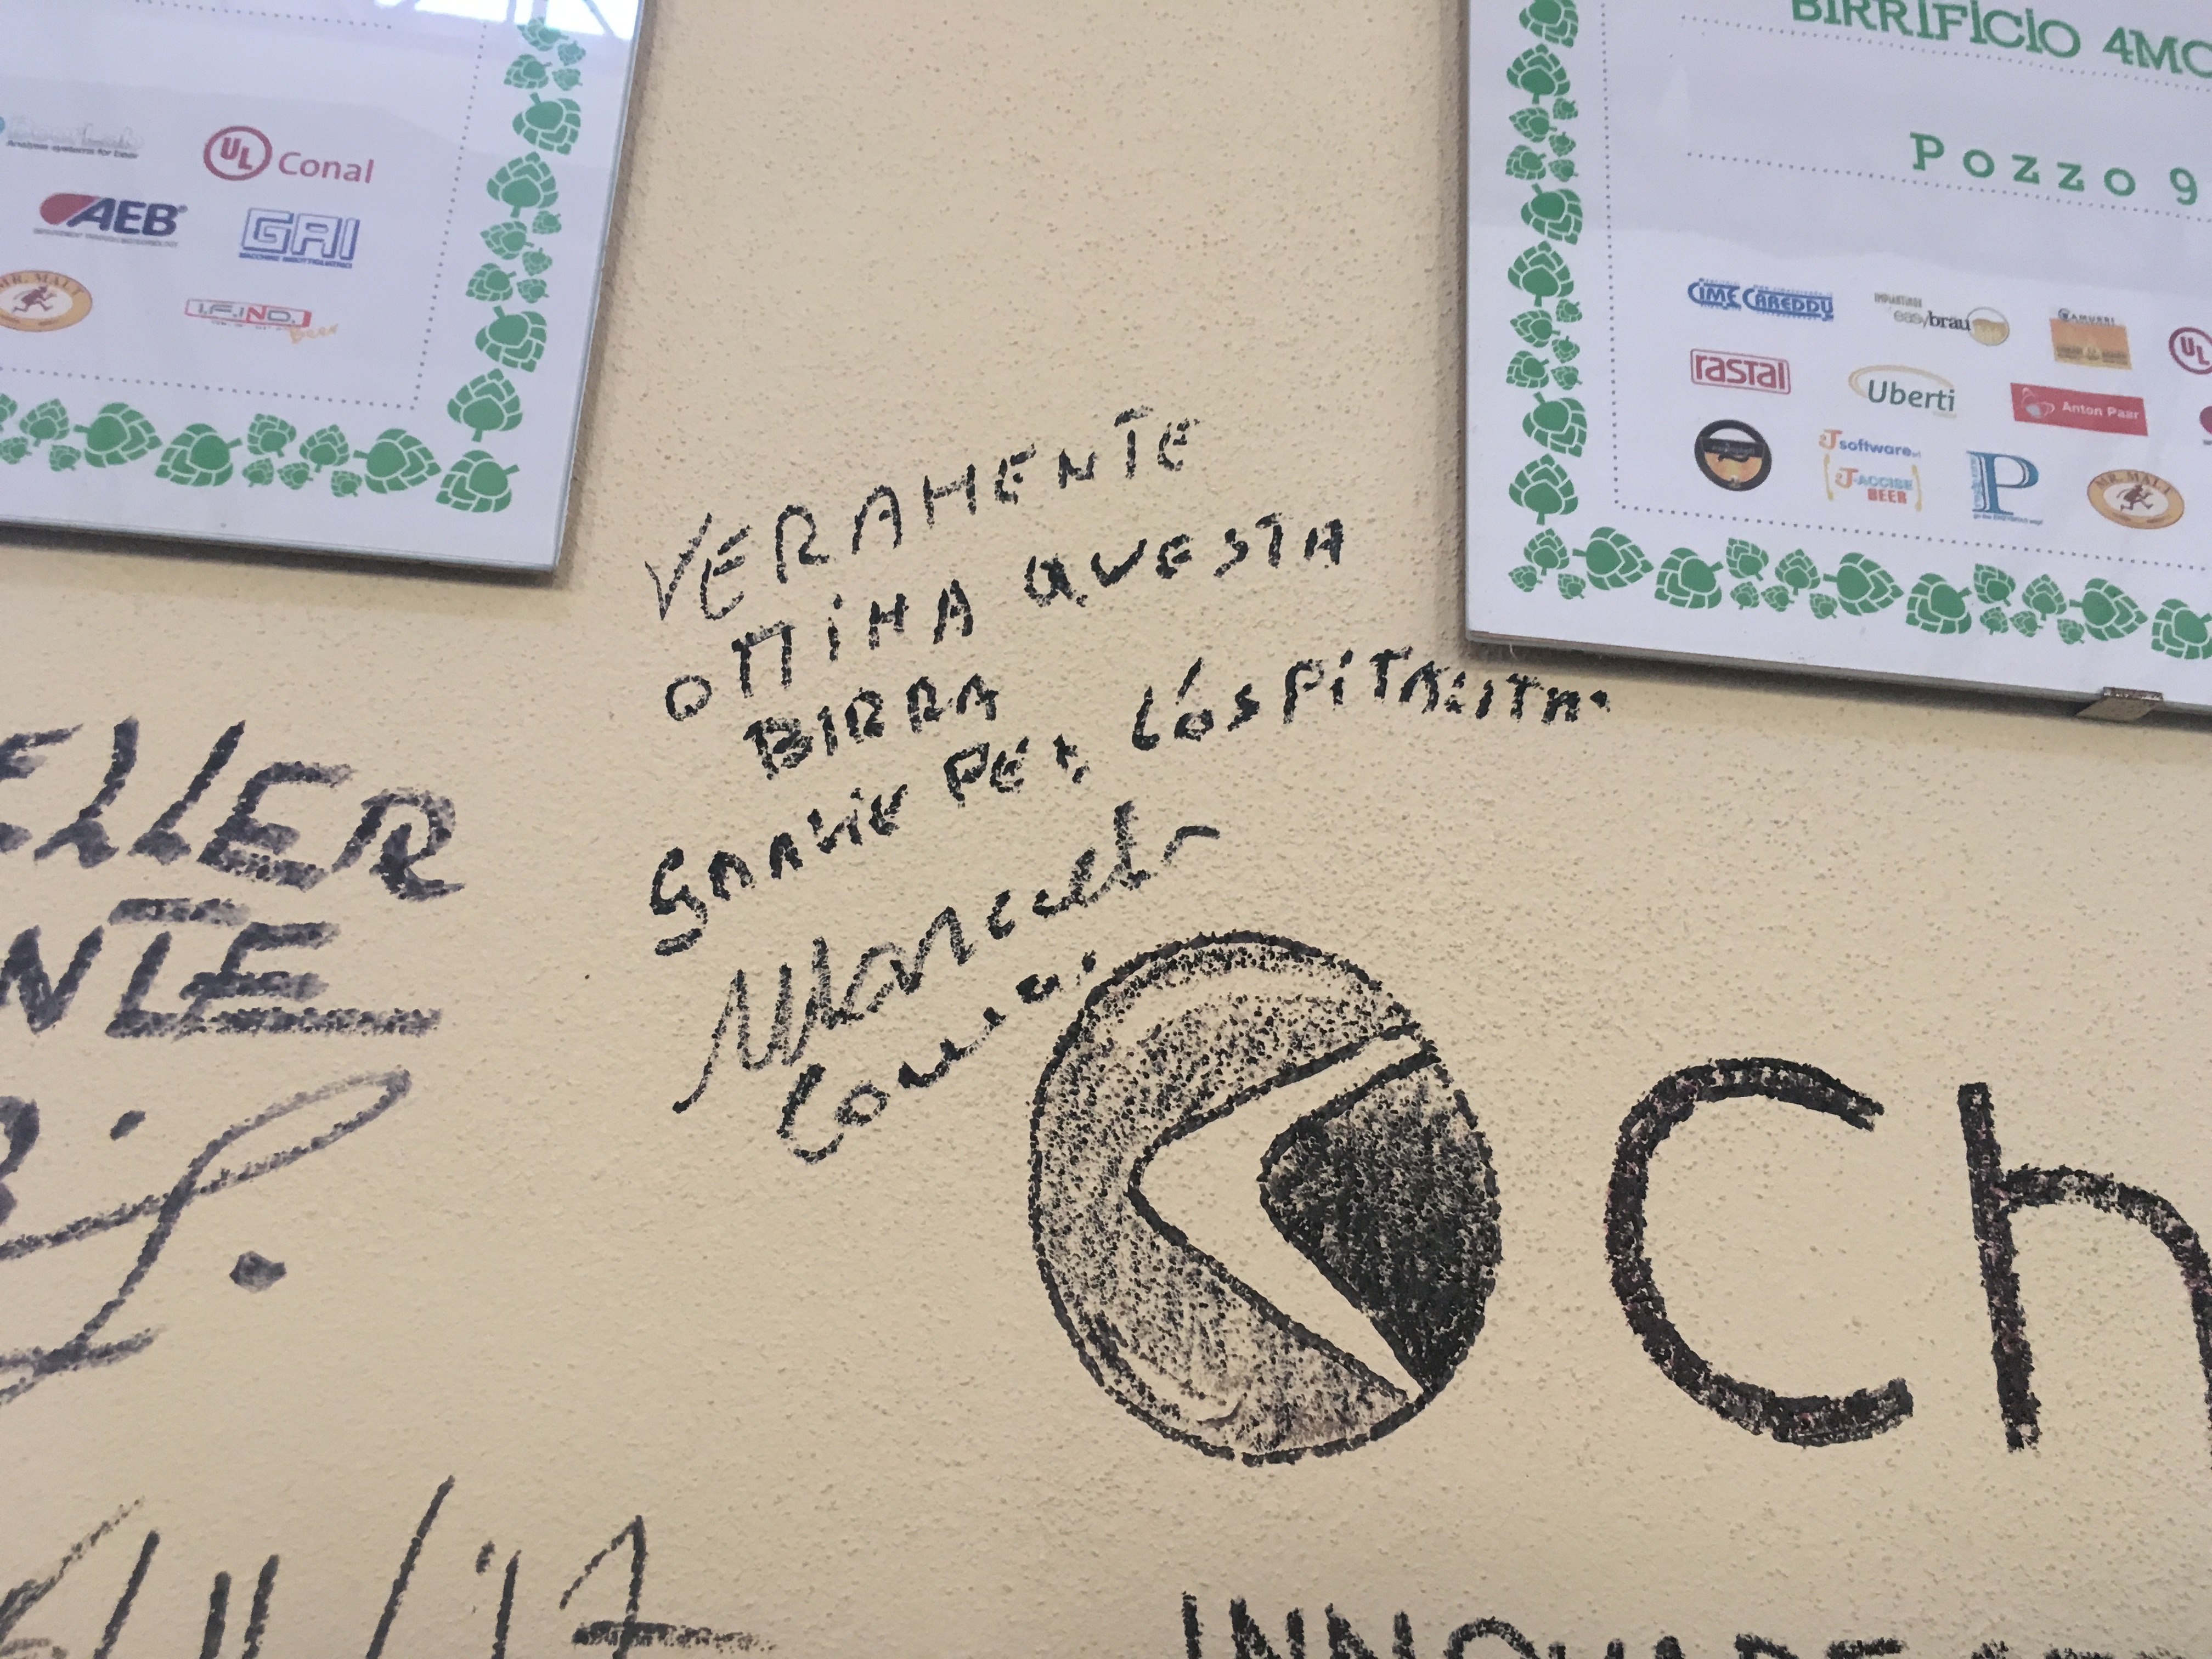 BIRRIFICIO 4MO
Pozzo 9
UL Conal
AEB
GAI
MR. MALT
I.F.IND.
Beer
CIME CAREDDU
easybrau
CAMURRI
UL
rastal
Uberti
Anton Paar
J software
J-ACCISE
BEER
P
MR. MALT
VERAMENTE
OTTIMA QUESTA
BIRRA
GRAZIE PER L'OSPITALITA'
Marcello
ELLER
NTE
Ch
/11/'17